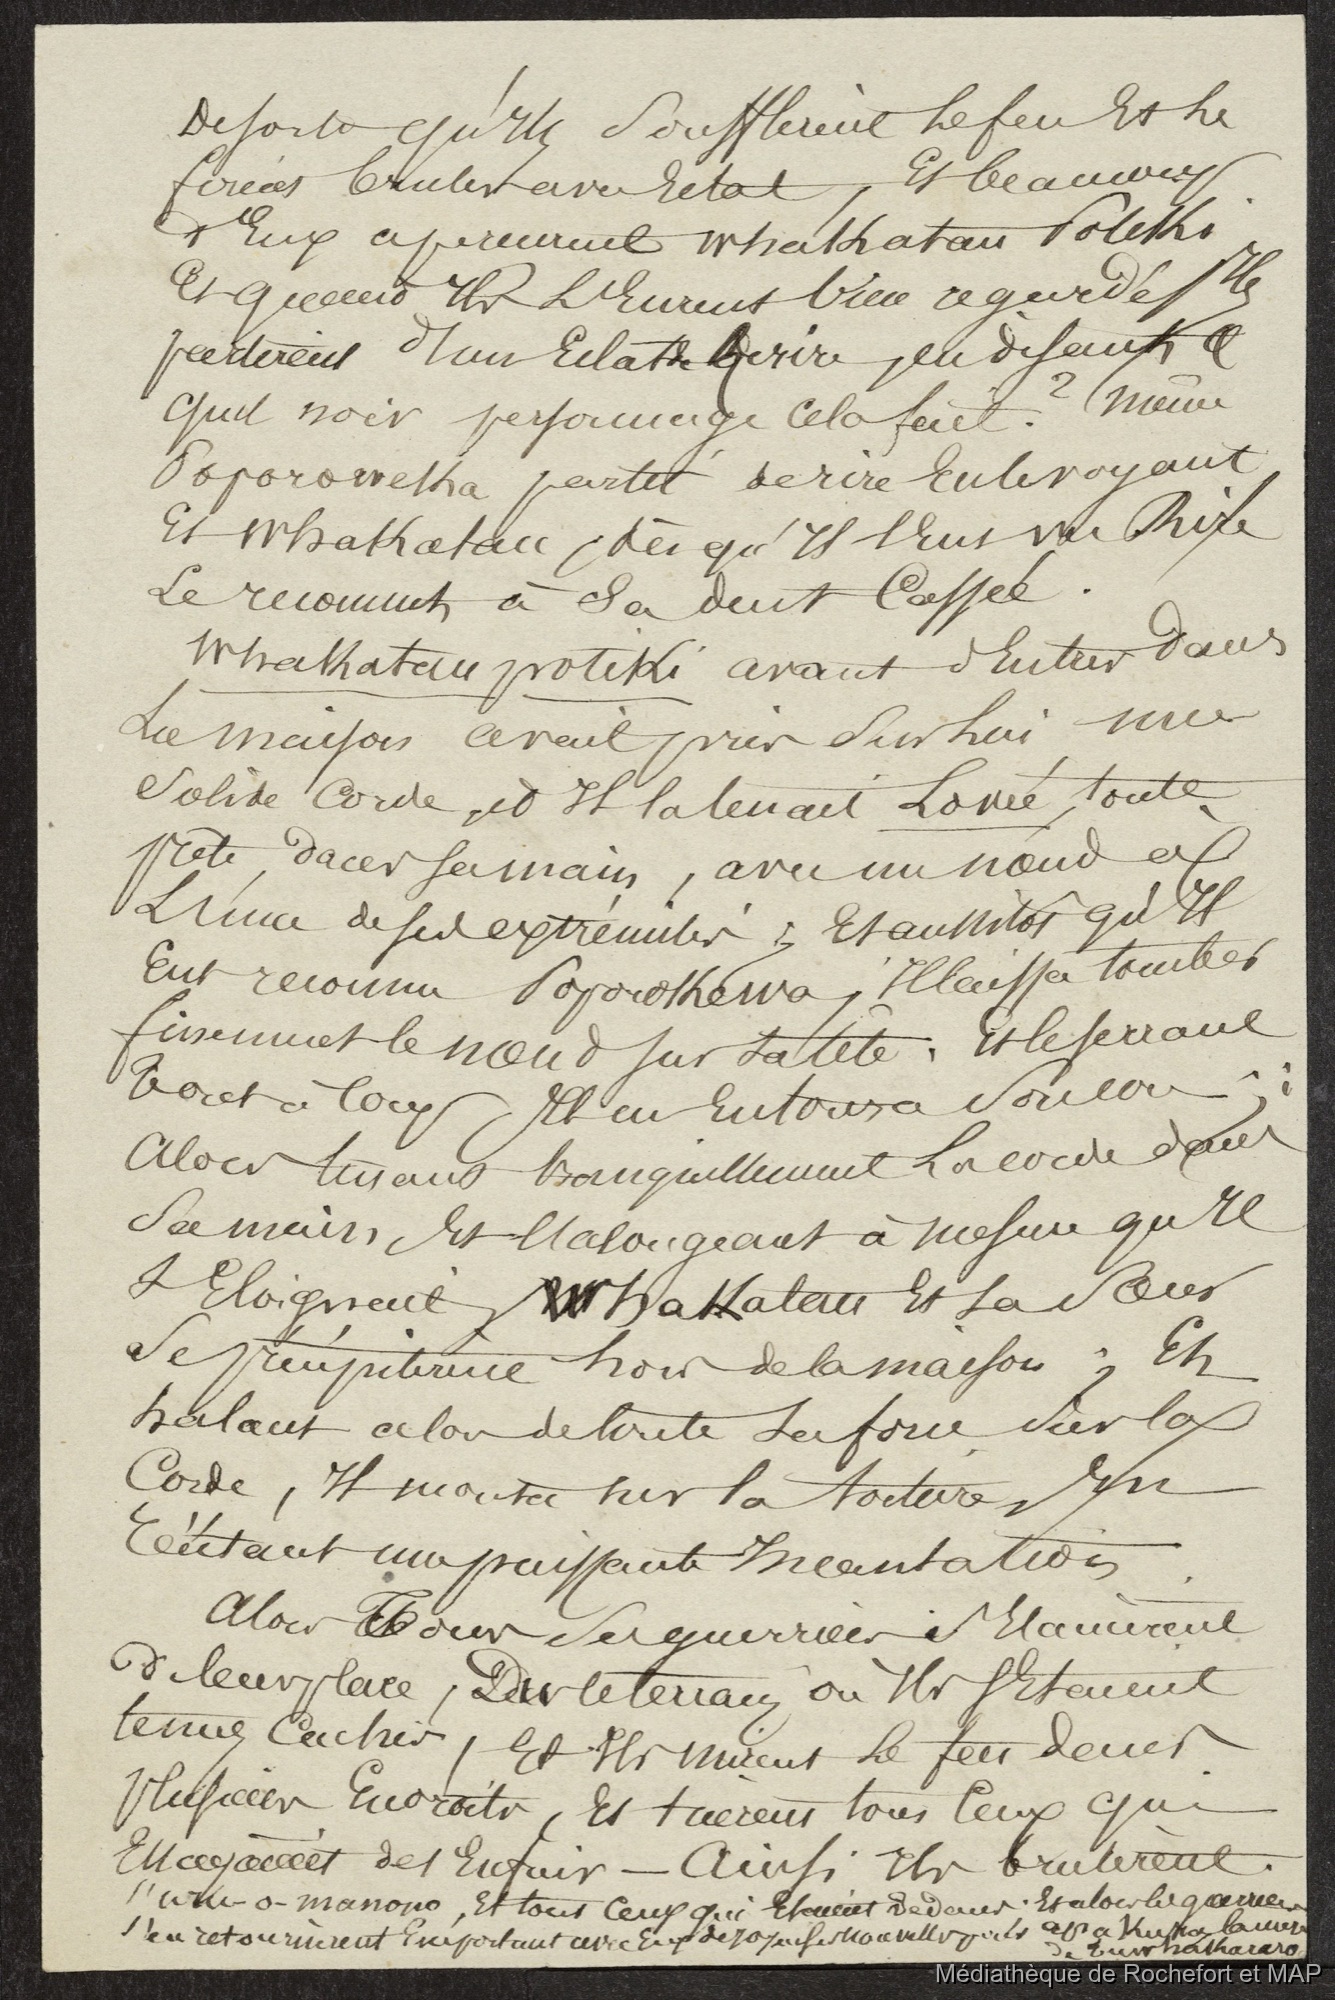 De sorte qu'ils Soufflerent Le feu Et Le
firent bruler avec Eclat, Et beaucoup
d'Eux aperçurent Whakatau Potiki
Et quand Ils L'Eurent bien regardés, Ils
partirent d'un Eclat de rire, en disant
quel noir personnage cela fait.? même
Poporowetha partit de rire En le voyant
Et Whakatau, dès qu'Il l'Eut vu Rire
Le reconnut à Sa dent Cassée.
Whakatau potiKi avant d'Entrer Dans
La maison avait pris Sur Lui une
Solide Corde, et Il la tenait Lovée, toute
prête, dans sa main, avec un nœud à
L'une de ses extrémités; Et aussitôt qu'Il
Eut reconnu Poporokéwa, Il laissa tomber
finement le nœud sur Sa tête. Et le serrant
tout à coup, Il en Entoura Son cou;
Alors tenant tranquillement La corde dans
Sa main, Et l'alongeant à mesure qu'Il
S'Eloignait, Whakatau Et Sa Sœur
Se précipiterent hors de la maison; Et
halant alors de toute Sa force Sur la
Corde, Il monta sur la toiture, En
récitant une puissante Incantation.
Alors Tous Ses guerriers S'Elancèrent
De leur place, Sur le terrain où Ils S'Etaient
tenus Cachés, Et Ils mirent Le feu dans
plusieurs Endroits, Et tuèrent tous Ceux qui
Essayaient de s'Enfuir — Ainsi Ils brulèrent
l'uru-o-manono, Et tous Ceux qui Etaient Dedans. Et alors les guerriers
s'en retournèrent Emportant avec Eux de joyeuses nouvelles pour apa Kura, la mère
de Tuwhakararo
Médiathèque de Rochefort et MAP